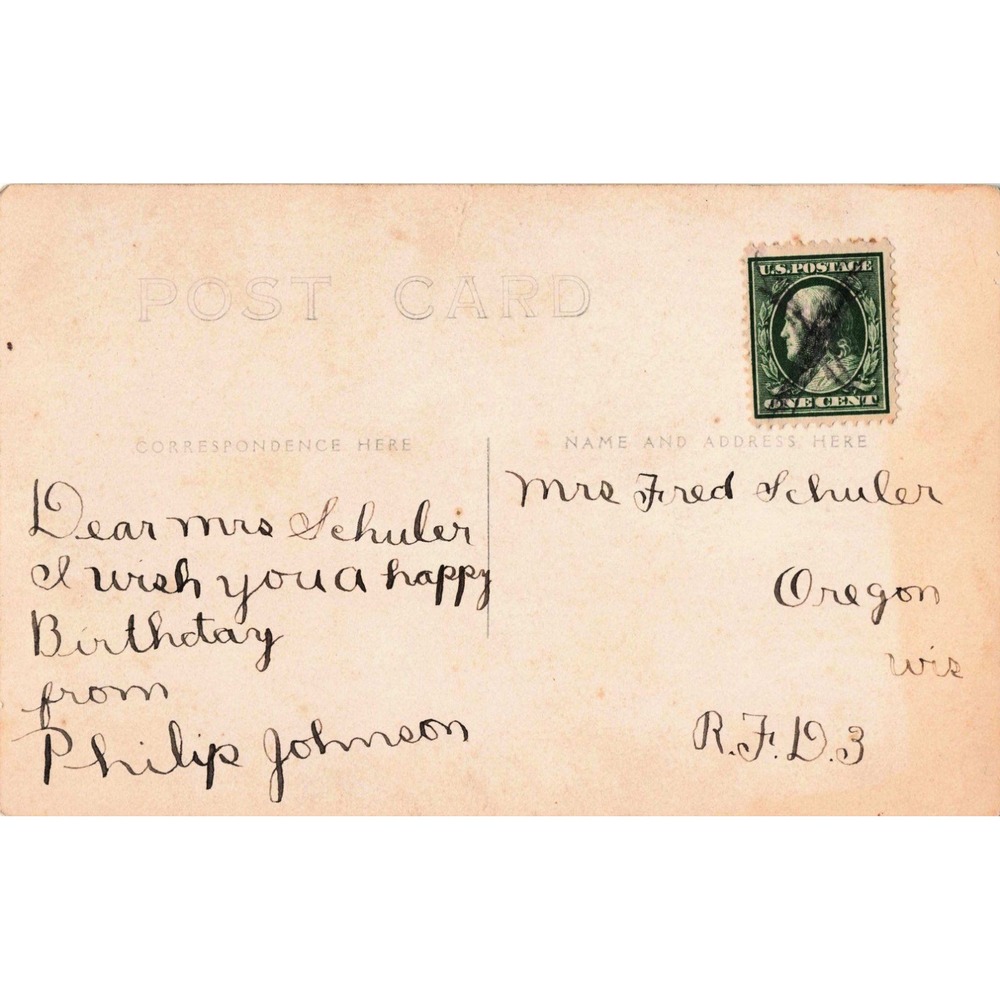 POST CARD
U.S. POSTAGE
ONE CENT
CORRESPONDENCE HERE
NAME AND ADDRESS HERE
Dear Mrs Schuler
I wish you a happy
Birthday
from
Philip Johnson
Mrs Fred Schuler
Oregon
Wis
R.F.D.3